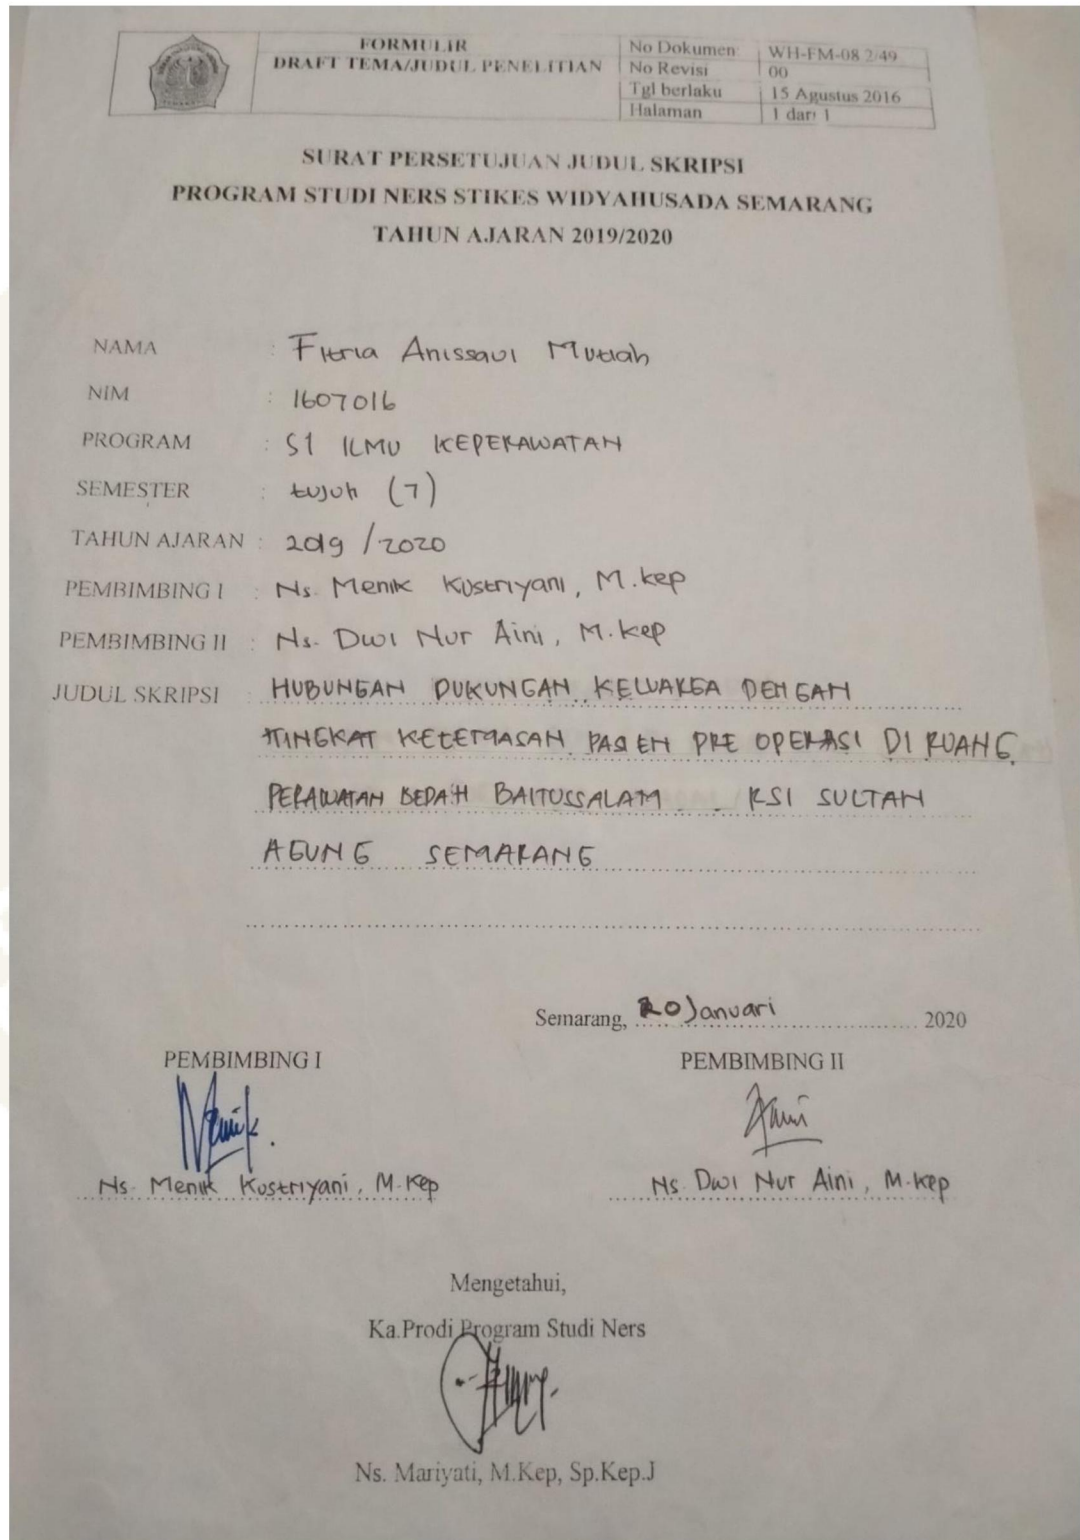 FORMULIR
DRAFT TEMA/JUDUL PENELITIAN
No Dokumen WH-FM-08.2/49
No Revisi 00
Tgl berlaku 15 Agustus 2016
Halaman 1 dari 1
SURAT PERSETUJUAN JUDUL SKRIPSI
PROGRAM STUDI NERS STIKES WIDYAHUSADA SEMARANG
TAHUN AJARAN 2019/2020
NAMA : Fitria Anissaul Mutiah
NIM : 1607016
PROGRAM : S1 ILMU KEPERAWATAN
SEMESTER : tujuh (7)
TAHUN AJARAN : 2019 / 2020
PEMBIMBING I : Ns. Menik Kustriyani, M.kep
PEMBIMBING II : Ns. Dwi Nur Aini, M.kep
JUDUL SKRIPSI : HUBUNGAN DUKUNGAN KELUARGA DENGAN
TINGKAT KECEMASAN PASIEN PRE OPERASI DI RUANG
PERAWATAN BEDAH BAITUSSALAM RSI SULTAN
AGUNG SEMARANG
Semarang, 20 Januari 2020
PEMBIMBING I PEMBIMBING II
Menik. Aini
Ns. Menik Kustriyani, M.Kep Ns. Dwi Nur Aini, M.Kep
Mengetahui,
Ka.Prodi Program Studi Ners
Ns. Mariyati, M.Kep, Sp.Kep.J